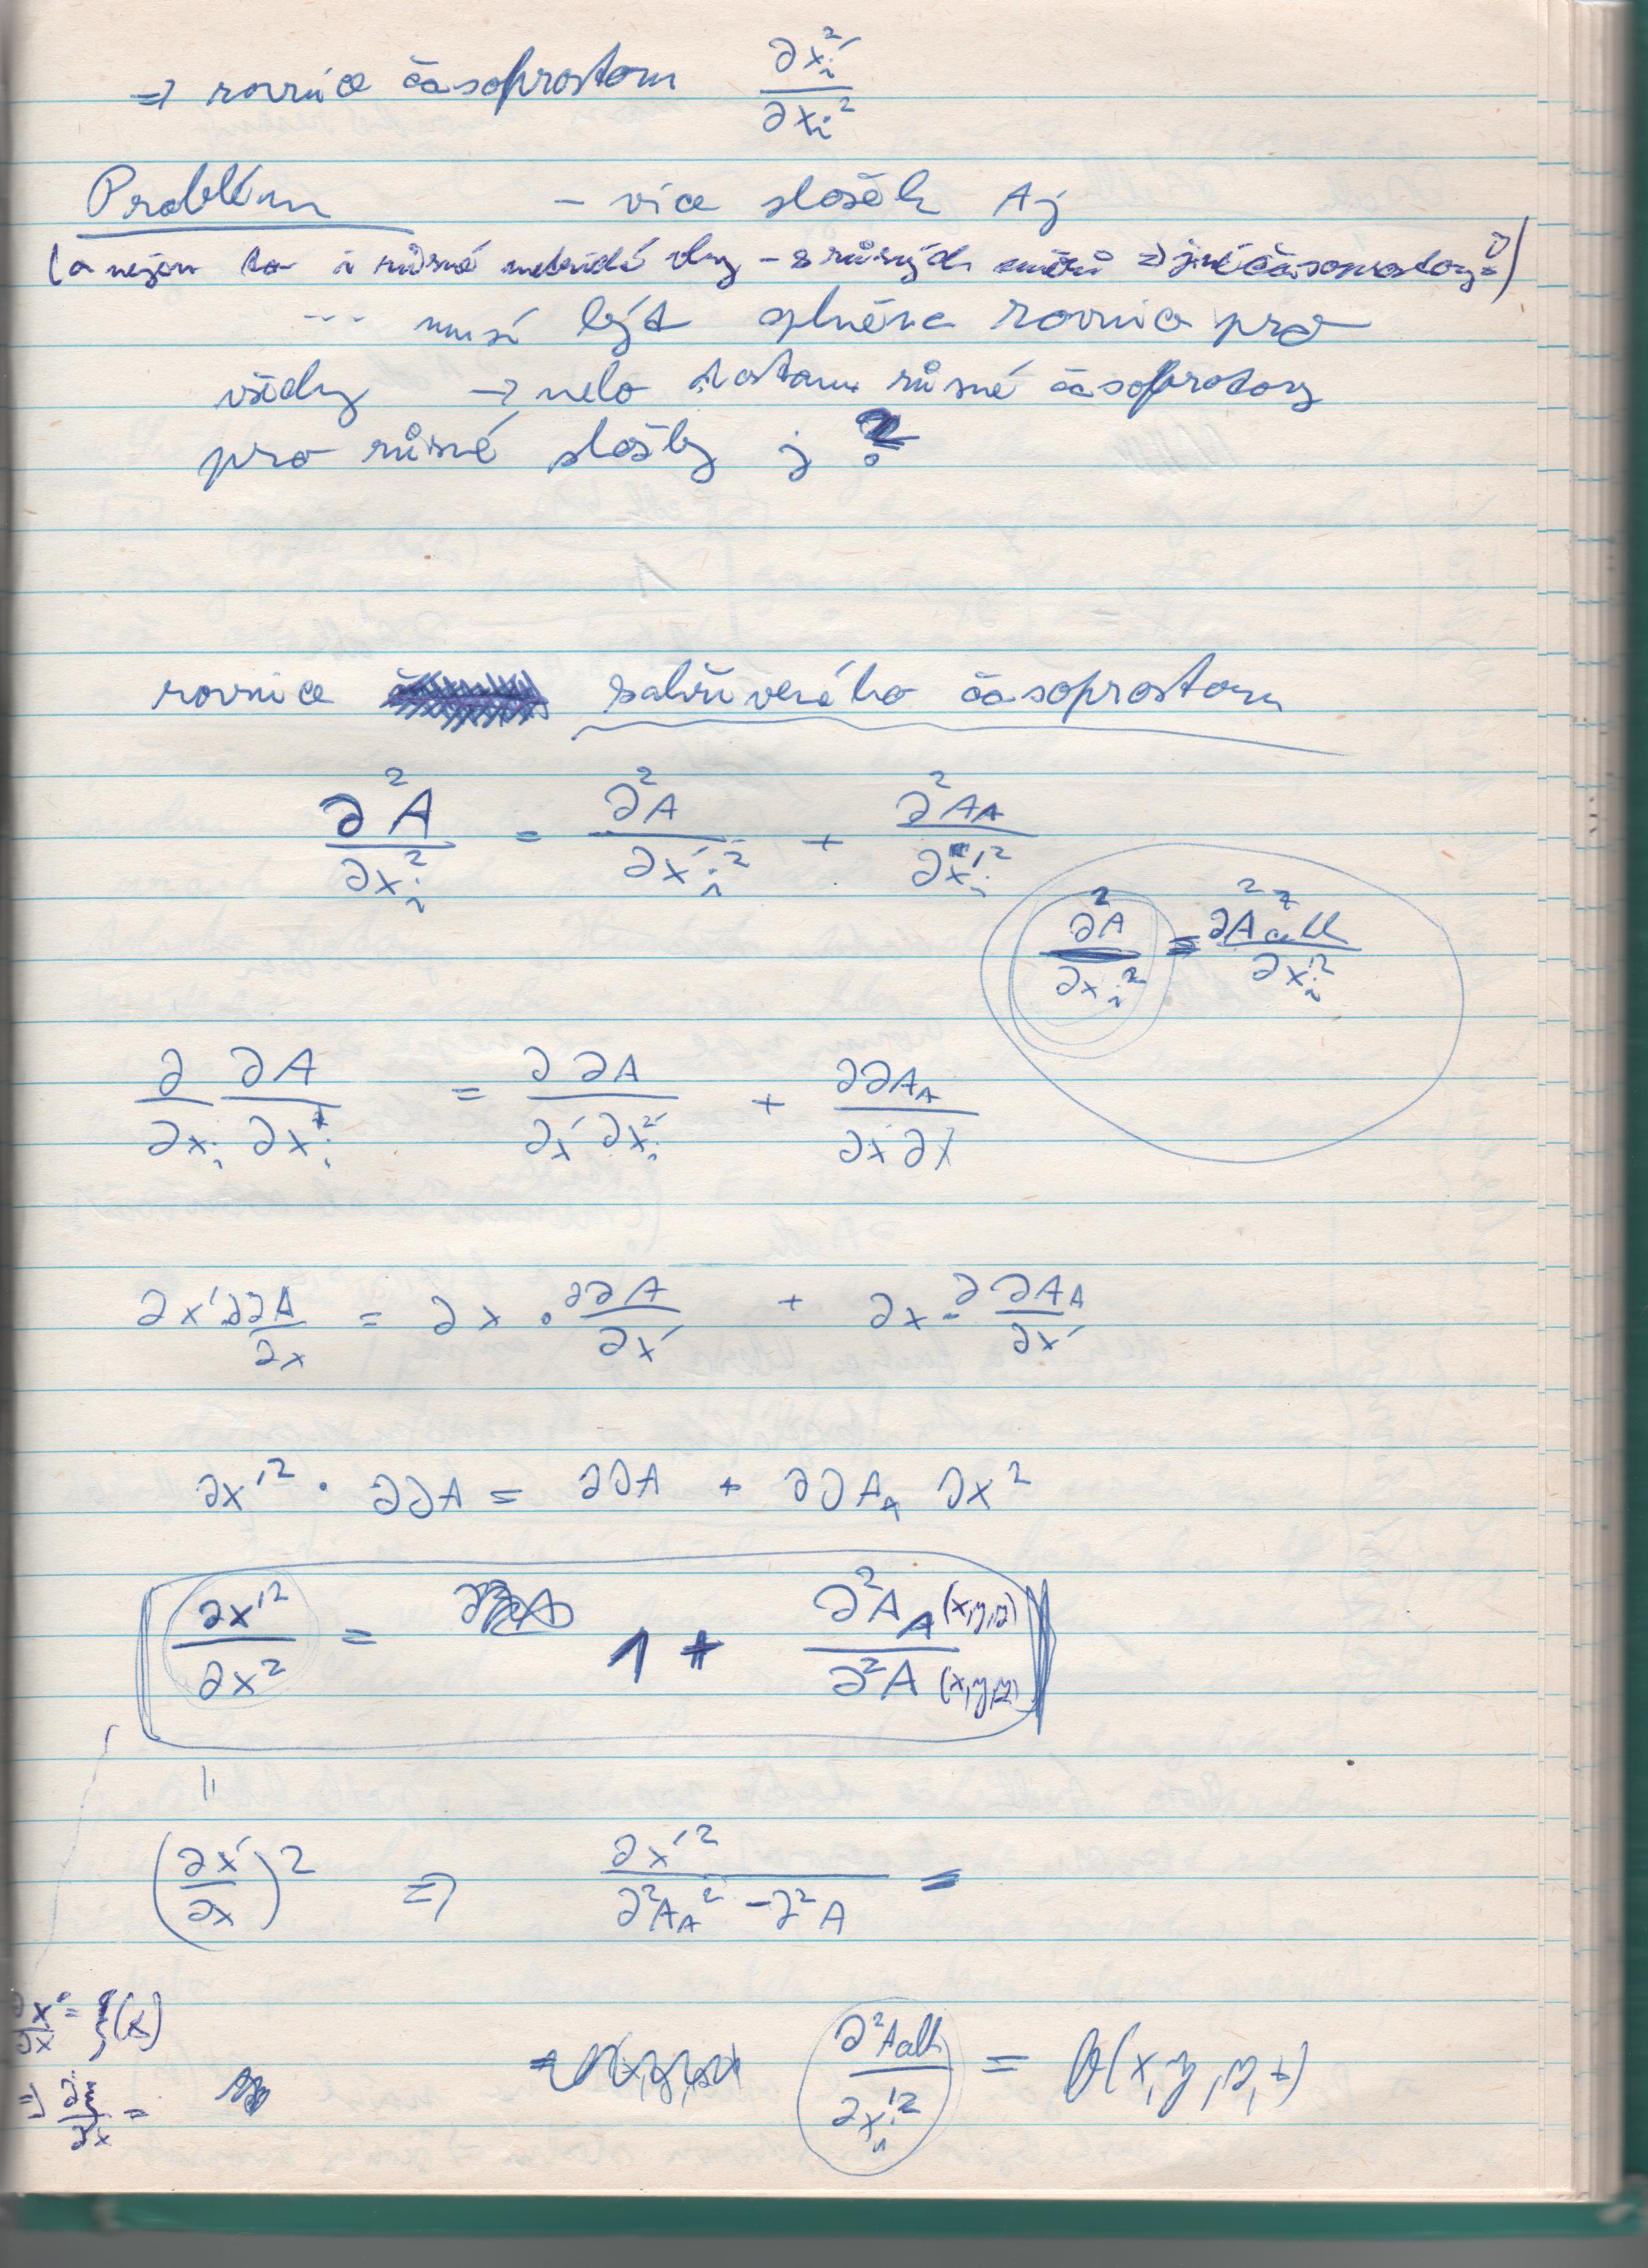 ⇒ rovnice časoprostoru ∂x'ᵢ² / ∂xᵢ²
Problém - více složek Aj
(a nejen to i různé vlny - z různých směrů ⇒ jiné časoprostory?)
--- musí být splněna rovnice pro
všechny → nebo dostanu různé časoprostory
pro různé složky j ?
rovnice zakřiveného časoprostoru
∂²A / ∂xᵢ² = ∂²A / ∂x'ᵢ² + ∂²A_A / ∂x'ᵢ²
∂²A / ∂xᵢ² = ∂²A² celk / ∂x'ᵢ²
∂/∂xᵢ ∂A/∂xᵢ = ∂∂A / ∂x'∂x'ᵢ + ∂∂A_A / ∂x'∂x'
∂x' ∂∂A/∂x = ∂x · ∂∂A/∂x' + ∂x · ∂∂A_A/∂x'
∂x'² · ∂∂A = ∂∂A + ∂∂A_A ∂x²
∂x'² / ∂x² = 1 + ∂²A_A (x,y,z) / ∂²A (x,y,z)
=
(∂x'/∂x)² ⇒ ∂x'² / ∂²A_A² - ∂²A =
∂x'/∂x = ξ(x)
∂²Acelk / ∂x'ᵢ² = f(x,y,z,t)